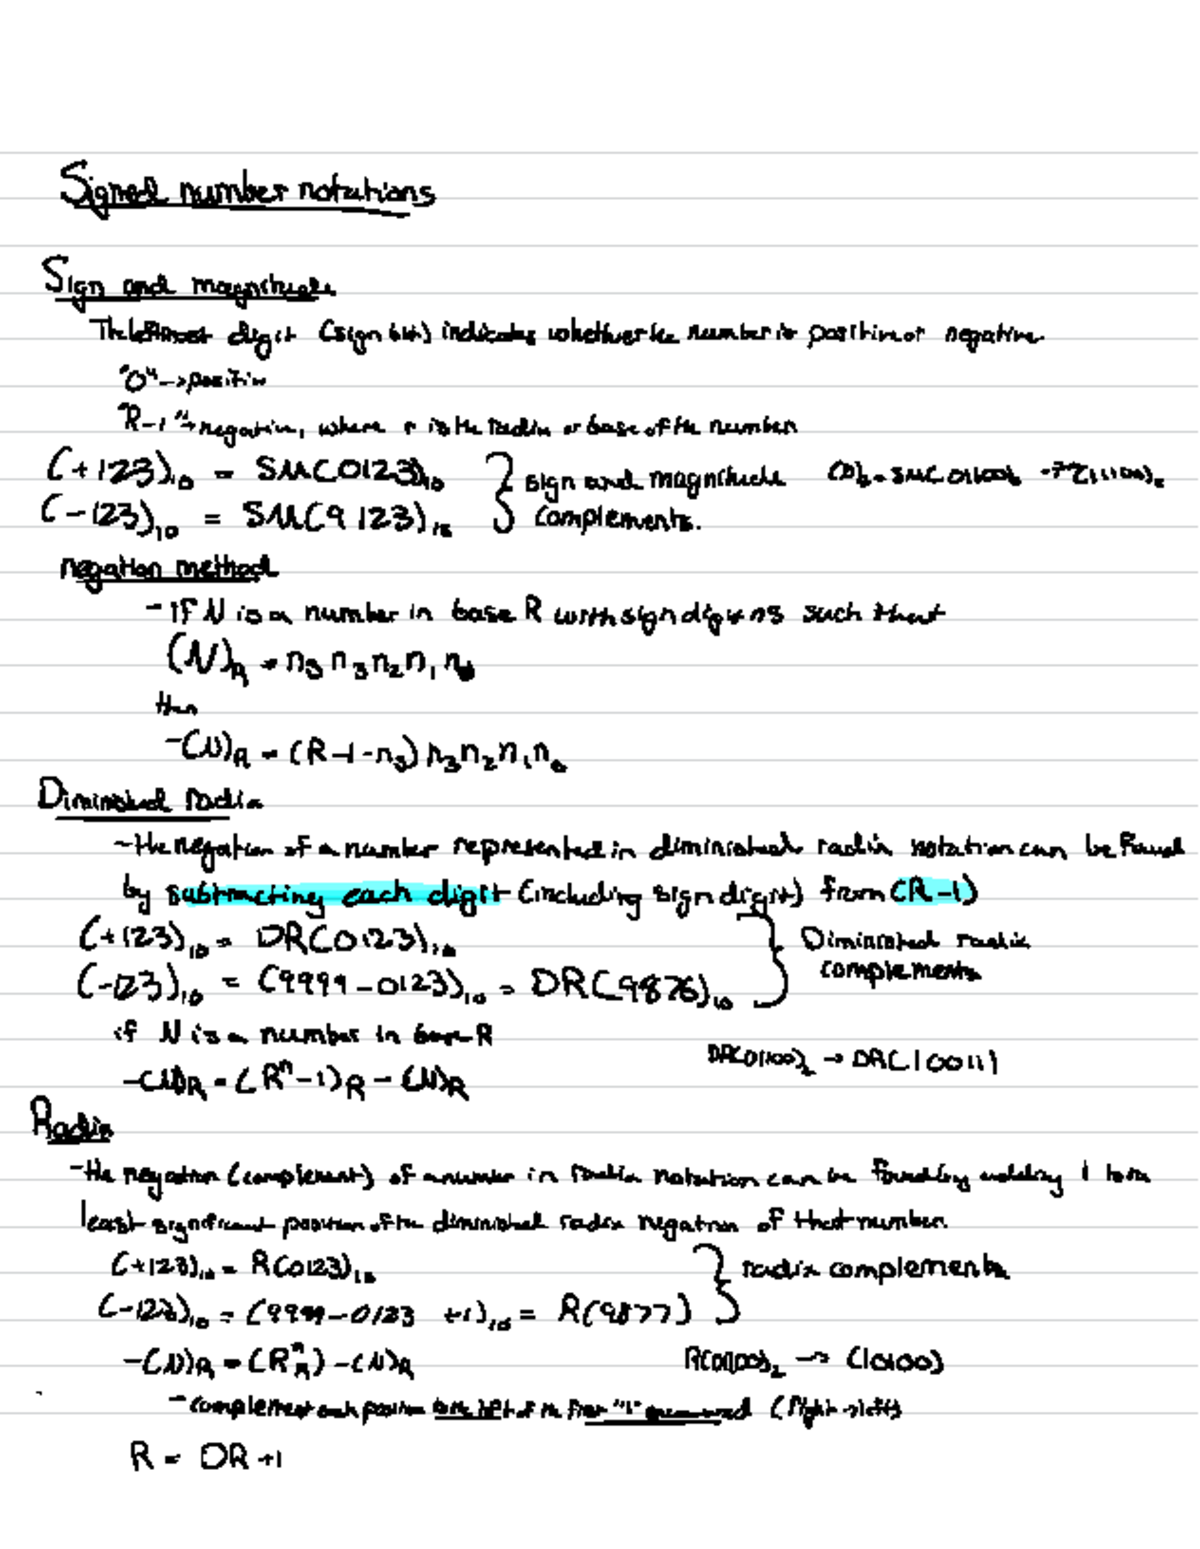 Signed number notations
Sign and magnitude
The leftmost digit (sign bit) indicates whether the number is positive or negative.
"0" -> positive
"R-1" -> negative, where r is the radix or base of the number
(+123)₁₀ = SM(0123)₁₀ } sign and magnitude
(-123)₁₀ = SM(9123)₁₀ complements.
negation method
- If N is a number in base R with sign digit ns such that
(N)R = ns n3 n2 n1 n0
then
-(N)R = (R-1-ns) n3 n2 n1 n0
Diminished radix
- the negation of a number represented in diminished radix notation can be found
by subtracting each digit (including sign digit) from (R-1)
(+123)₁₀ = DR(0123)₁₀ } Diminished radix
(-123)₁₀ = (9999-0123)₁₀ = DR(9876)₁₀ complements
if N is a number in base R
DR(01100)₂ -> DR(10011)
-(N)R = (Rⁿ-1)R - (N)R
Radix
- the negation (complement) of a number in radix notation can be found by adding 1 to the
least significant position of the diminished radix negation of that number.
(+123)₁₀ = R(0123)₁₀ } radix complements
(-123)₁₀ = (9999-0123 +1)₁₀ = R(9877)
-(N)R = (Rⁿ)R - (N)R R(01100)₂ -> (10100)
- complement each position to the left of the first "1" (Right->left)
R = DR +1